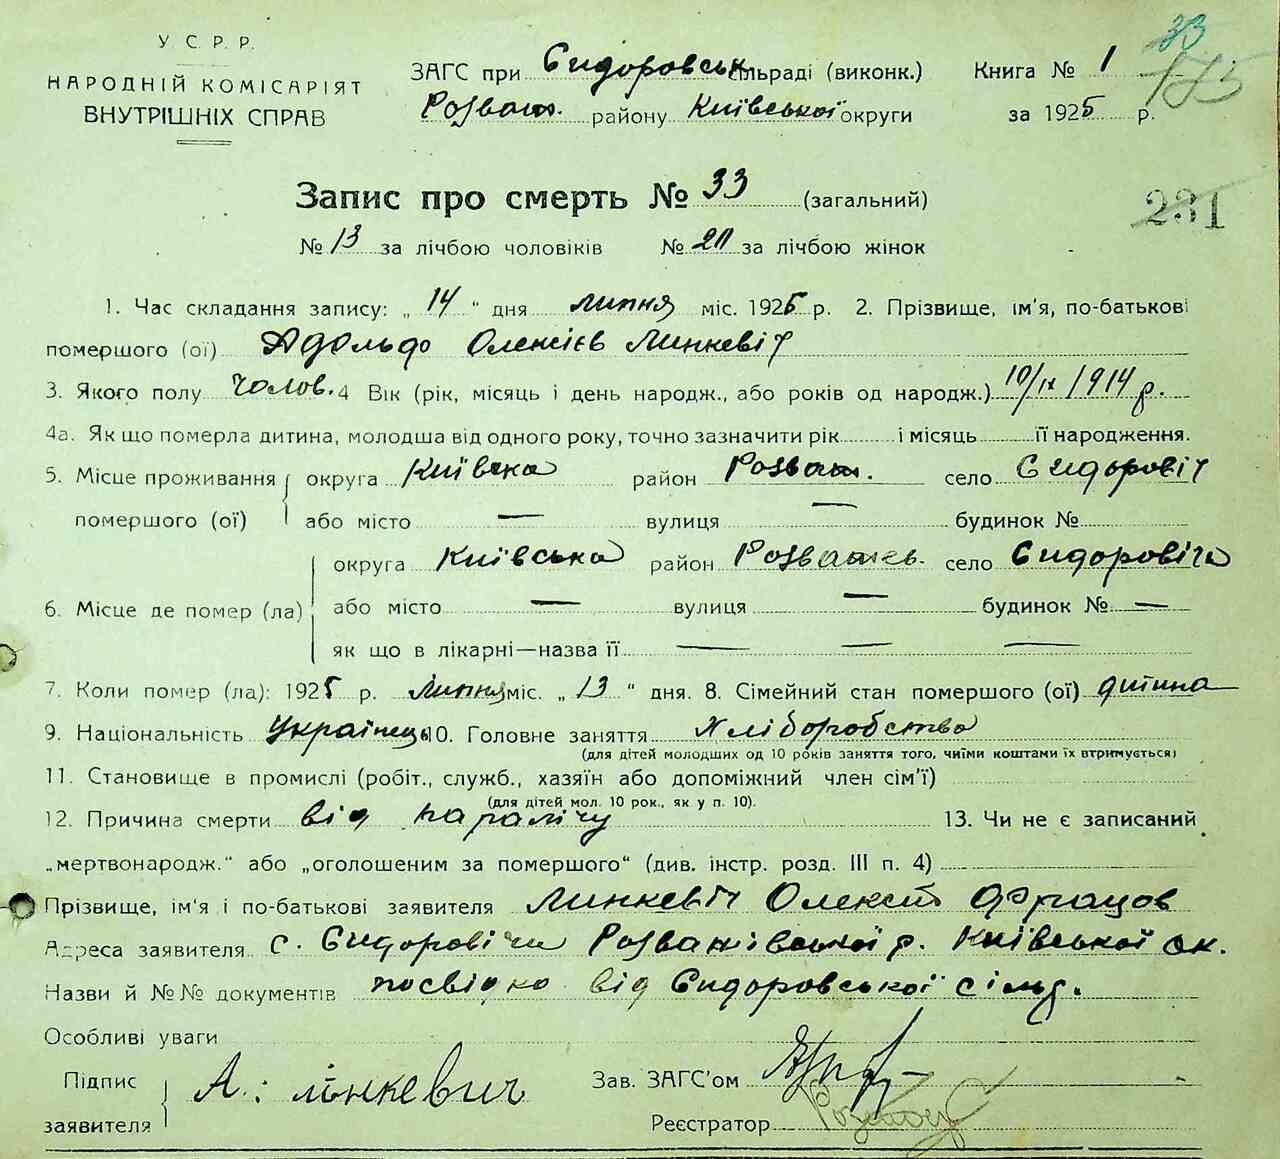 У. С. Р. Р.
НАРОДНІЙ КОМІСАРІЯТ
ВНУТРІШНІХ СПРАВ
ЗАГС при Сидоровськ сільраді (виконк.)
Розваж. району Київської округи
Книга № 1
за 1925 р.
33
175
231
Запис про смерть № 33 (загальний)
№ 13 за лічбою чоловіків № 20 за лічбою жінок
1. Час складання запису: „ 14 “ дня липня міс. 1925 р. 2. Прізвище, ім'я, по-батькові
помершого (ої) Адольфо Олексієв Линкевіч
3. Якого полу чолов. 4 Вік (рік, місяць і день народж., або років од народж.) 10/IX 1914 р.
4а. Як що померла дитина, молодша від одного року, точно зазначити рік і місяць її народження.
5. Місце проживання округа Київска район Розваж. село Сидоровіч
помершого (ої) або місто — вулиця — будинок №
округа Київська район Розважев. село Сидоровічи
6. Місце де помер (ла) або місто — вулиця — будинок № —
як що в лікарні—назва її — — —
7. Коли помер (ла): 1925 р. Липня міс. „ 13 “ дня. 8. Сімейний стан помершого (ої) дитина
9. Національність Українець 10. Головне заняття Хліборобство
(для дітей молодших од 10 років заняття того, чиїми коштами їх втримується)
11. Становище в промислі (робіт., служб., хазяїн або допоміжний член сім'ї)
(для дітей мол. 10 рок., як у п. 10).
12. Причина смерти від паралічу 13. Чи не є записаний
„мертвонародж.“ або „оголошеним за помершого“ (див. інстр. розд. III п. 4)
Прізвище, ім'я і по-батькові заявителя Линкевіч Олексій
Адреса заявителя с. Сидоровічи Розважівської р. Київської ок.
Назви й №№ документів посвідко від Сидоровської сільр.
Особливі уваги
Підпис
заявителя А: лінкевич
Зав. ЗАГС'ом
Реєстратор